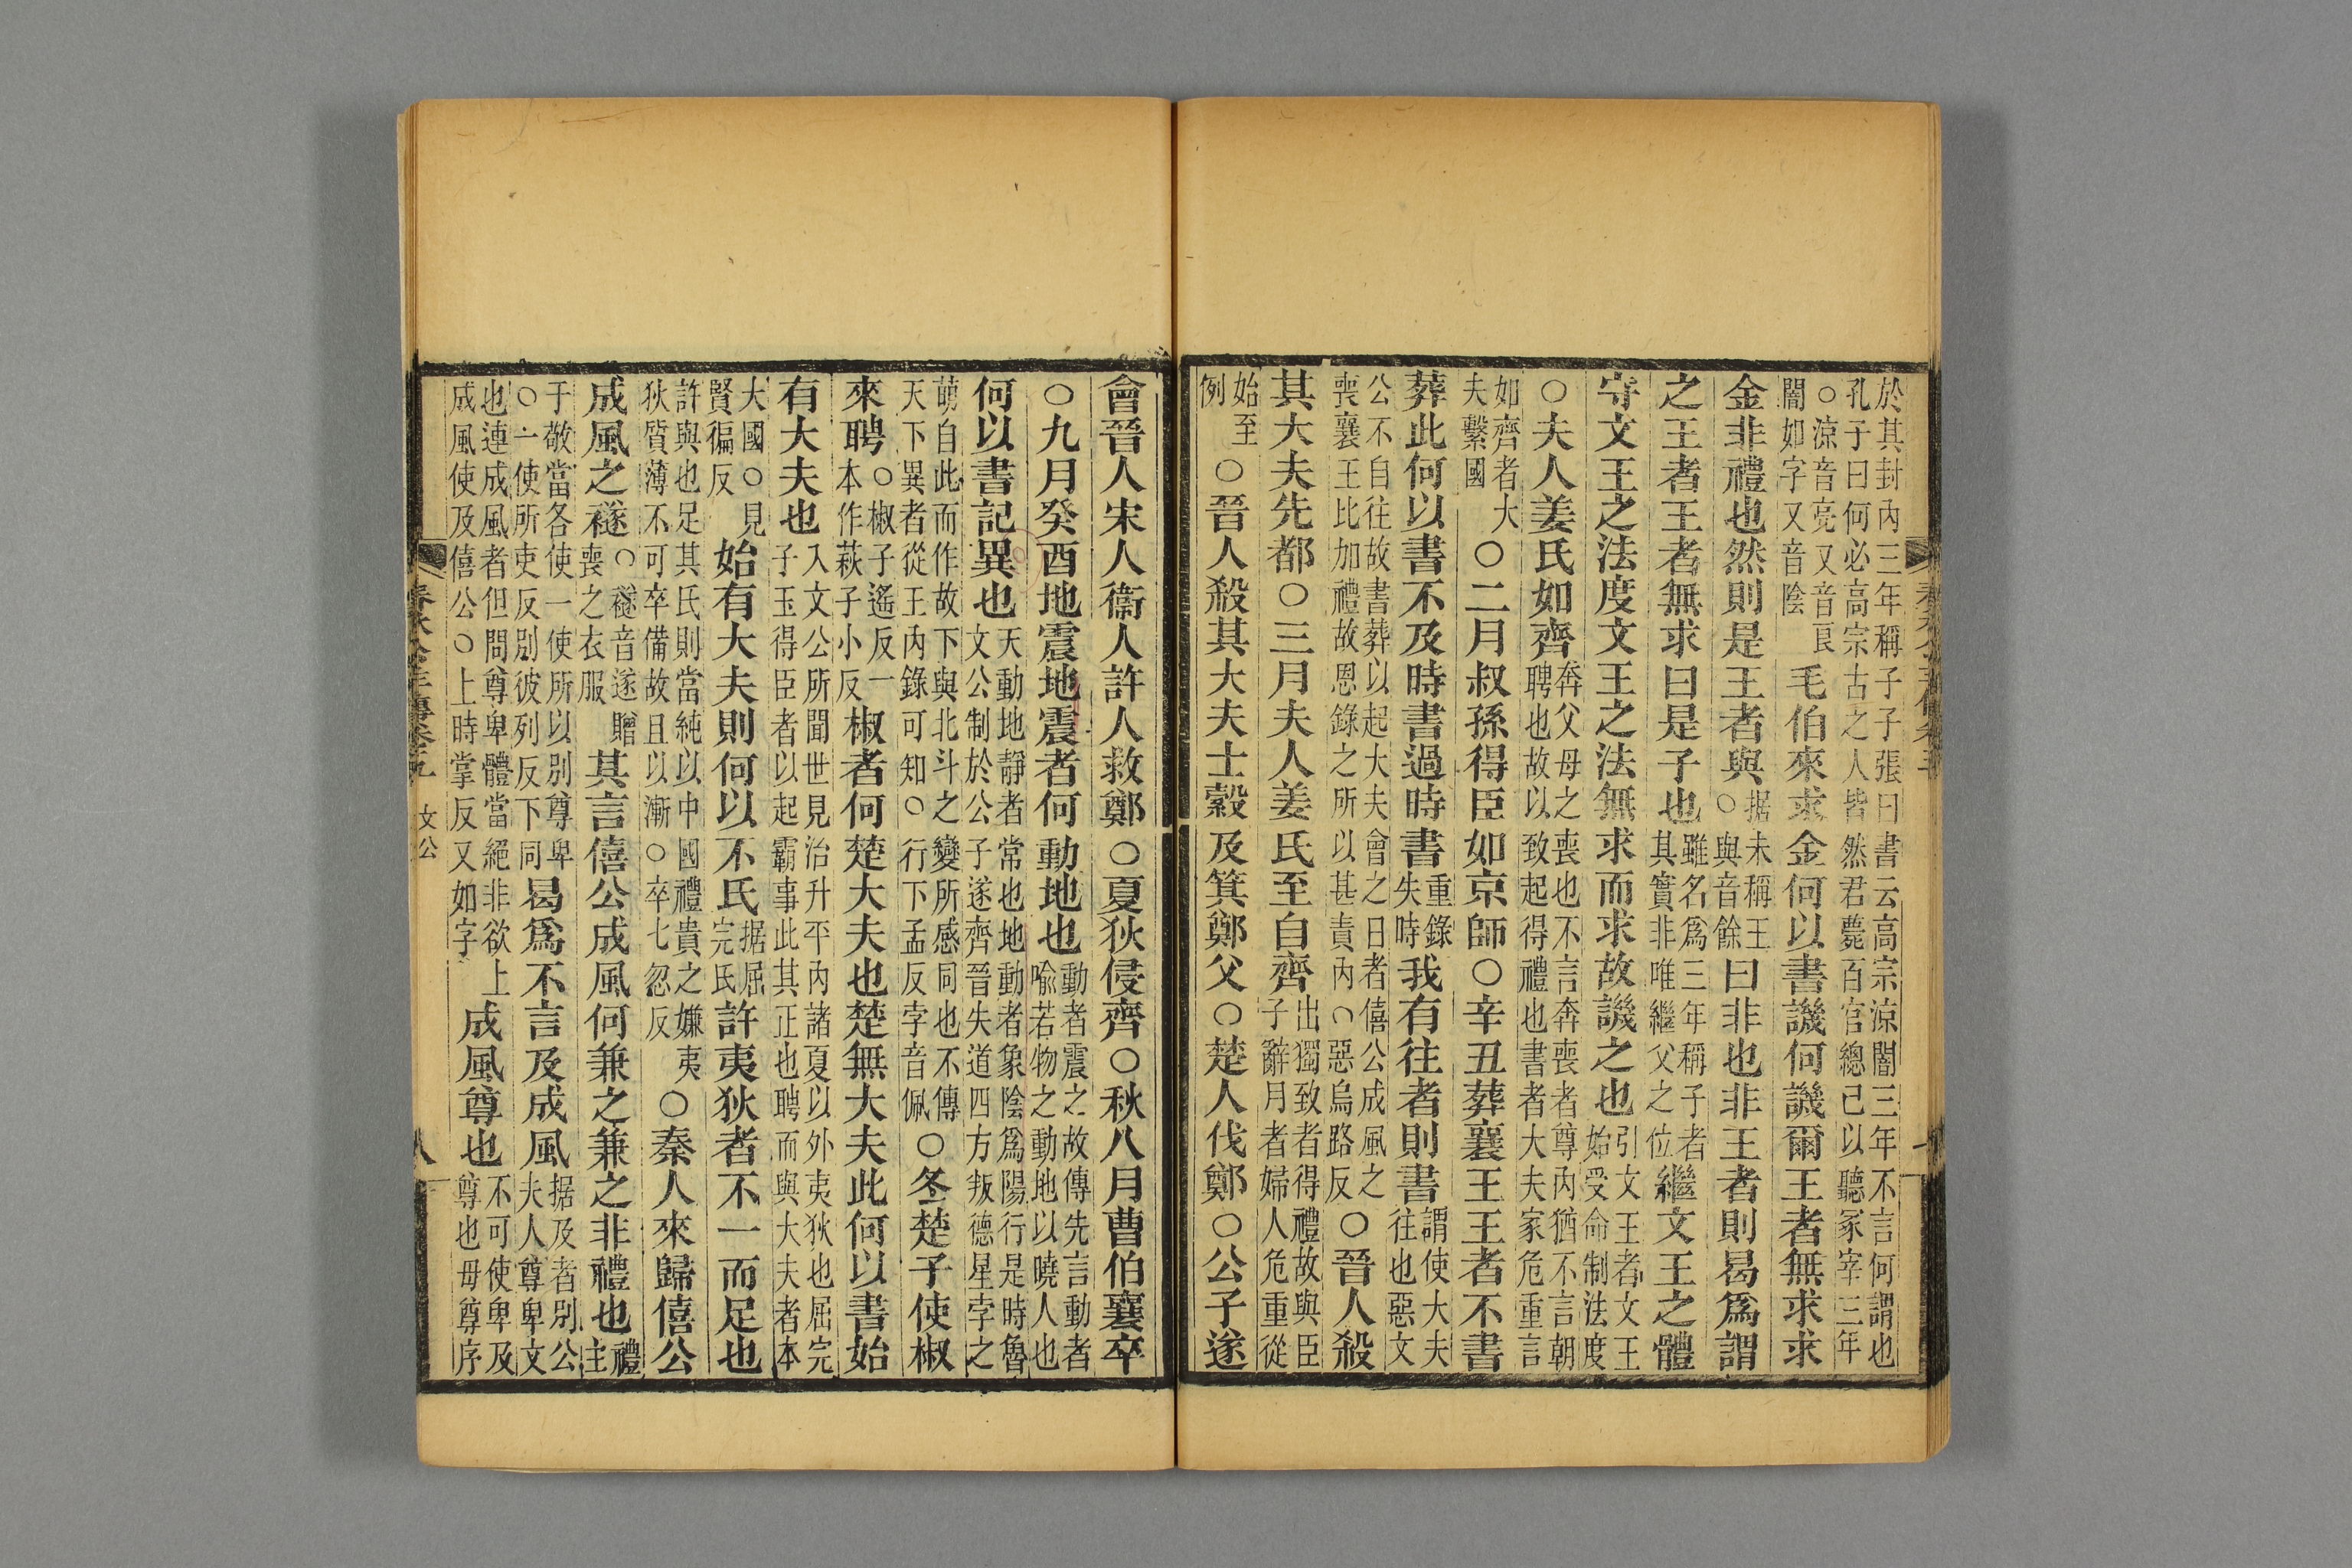 於其封內三年稱子子張曰書云高宗涼闇三年不言何謂也
孔子曰何必高宗古之人皆然君薨百官總己以聽冢宰三年
○涼音亮又音良
闇如字又音陰
毛伯來求金何以書譏何譏爾王者無求求
金非禮也然則是王者與
据未稱王
○與音餘
曰非也非王者則曷爲謂
之王者王者無求曰是子也
雖名爲三年稱子者
其實非唯繼父之位
繼文王之體
守文王之法度文王之法無求而求故譏之也
引文王者文王
始受命制法度
○夫人姜氏如齊
奔父母之喪也不言奔喪者尊內猶不言朝
聘也故以致起得禮也書者大夫家危重言
如齊者大
夫繫國
○二月叔孫得臣如京師○辛丑葬襄王王者不書
葬此何以書不及時書過時書
重錄
失時
我有往者則書
謂使大夫
往也惡文
公不自往故書葬以起大夫會之日者僖公成風之
喪襄王比加禮故恩錄之所以甚責內○惡烏路反
○晉人殺
其大夫先都○三月夫人姜氏至自齊
出獨致者得禮故與臣
子辭月者婦人危重從
始至
例
○晉人殺其大夫士縠及箕鄭父○楚人伐鄭○公子遂
會晉人宋人衞人許人救鄭○夏狄侵齊○秋八月曹伯襄卒
○九月癸酉地震地震者何動地也
動者震之故傳先言動者
喻若物之動地以曉人也
何以書記異也
天動地靜者常也地動者象陰爲陽行是時魯
文公制於公子遂齊晉失道四方叛德星孛之
萌自此而作故下與北斗之變所感同也不傳
天下異者從王內錄可知○行下孟反孛音佩
○冬楚子使椒
來聘
○椒子遙反一
本作萩子小反
椒者何楚大夫也楚無大夫此何以書始
有大夫也
入文公所聞世見治升平內諸夏以外夷狄也屈完
子玉得臣者以起霸事此其正也聘而與大夫者本
大國○見
賢徧反
始有大夫則何以不氏
据屈
完氏
許夷狄者不一而足也
許與也足其氏則當純以中國禮貴之嫌夷
狄質薄不可卒備故且以漸○卒七忽反
○秦人來歸僖公
成風之襚
○襚音遂贈
喪之衣服
其言僖公成風何兼之兼之非禮也
禮
主
于敬當各使一使所以別尊卑
○一使所吏反別彼列反下同
曷爲不言及成風
据及者別公
夫人尊卑文
也連成風者但問尊卑體當絕非欲上
成風使及僖公○上時掌反又如字
成風尊也
不可使卑及
尊也母尊序
文公
八